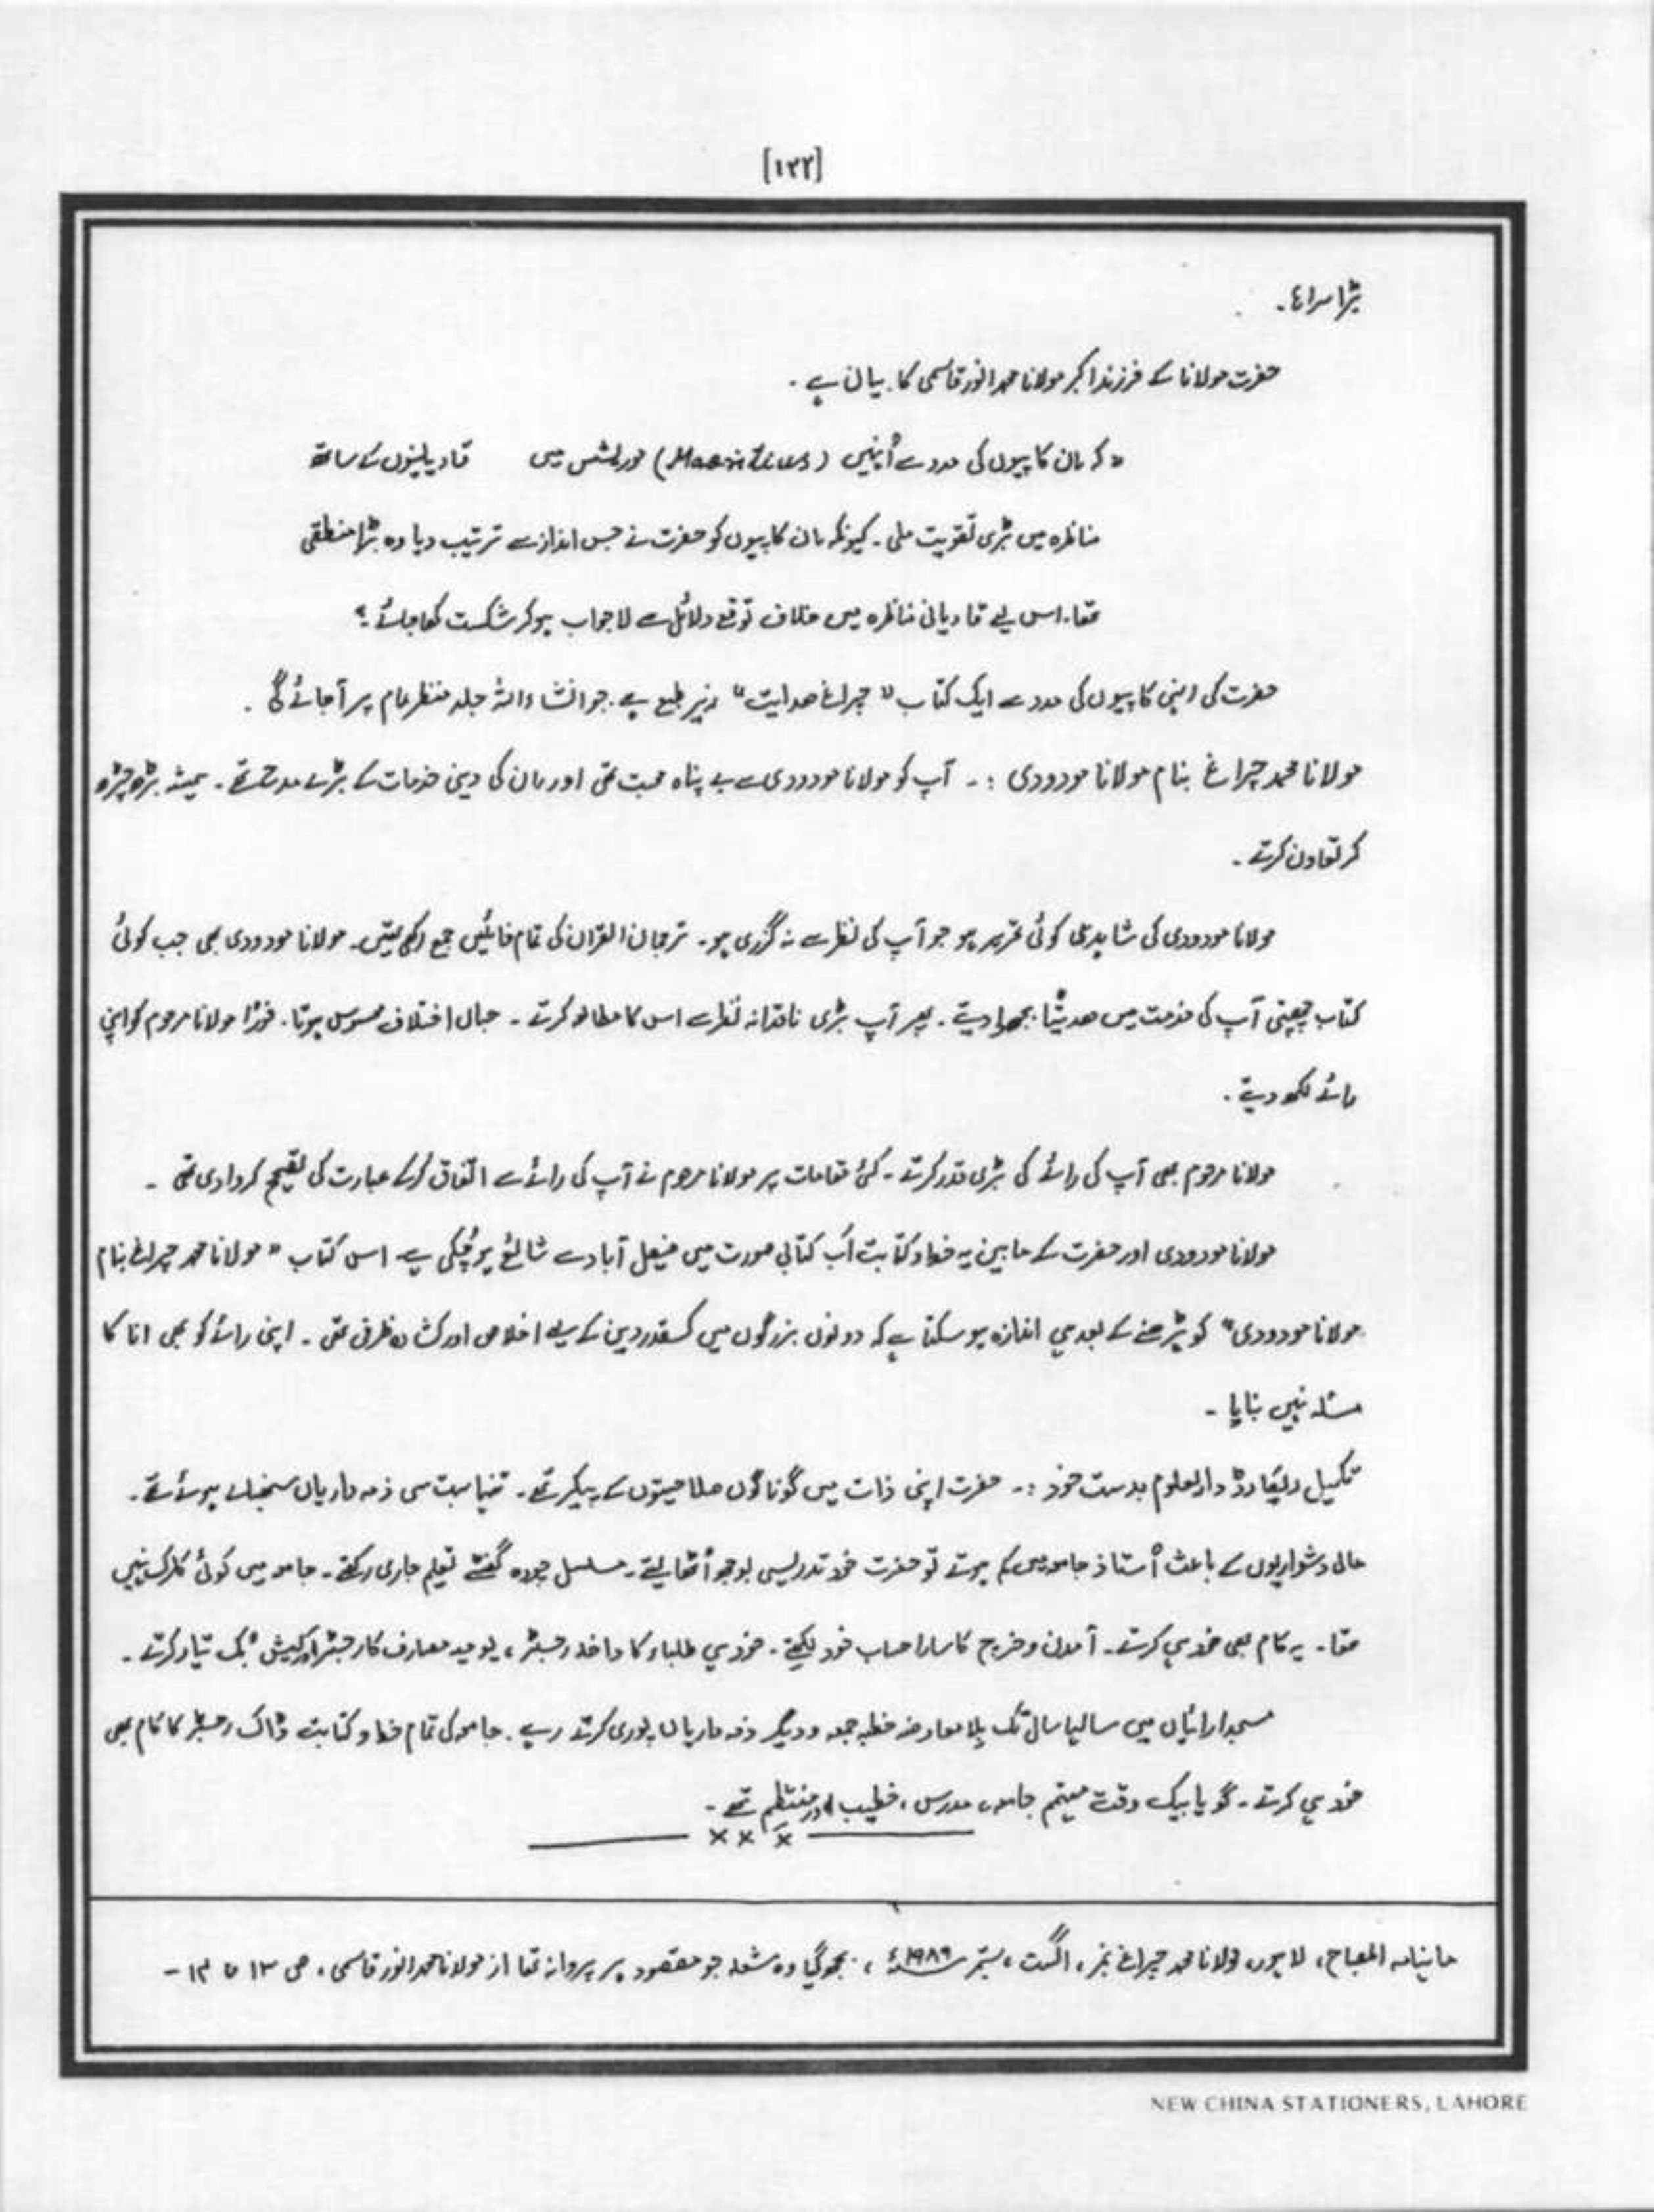 [۱۲۲]
بڑا سراہا۔
حضرت مولانا کے فرزند اکبر مولانا محمد انور قاسمی کا بیان ہے۔
"کہ ان کاپیوں کی مدد سے اُنہیں (Mauritius) موریشس میں قادیانیوں کے ساتھ
مناظرہ میں بڑی تقویت ملی۔ کیونکہ ان کاپیوں کو حضرت نے جس انداز سے ترتیب دیا وہ بڑا منطقی
تھا۔ اس لیے قادیانی مناظرہ میں خلاف توقع دلائل سے لاجواب ہو کر شکست کھا جاتے"
حضرت کی انہی کاپیوں کی مدد سے ایک کتاب "چراغ ھدایت" زیر طبع ہے۔ جو انشاءاللہ جلد منظر عام پر آ جائے گی۔
مولانا محمد چراغ بنام مولانا مودودی :۔ آپ کو مولانا مودودی سے بے پناہ محبت تھی اور ان کی دینی خدمات کے بڑے مداح تھے۔ ہمیشہ بڑھ چڑھ
کر تعاون کرتے۔
مولانا مودودی کی شاید ہی کوئی تحریر ہو جو آپ کی نظر سے نہ گزری ہو۔ ترجمان القرآن کی تمام فائلیں جمع رکھی تھیں۔ مولانا مودودی بھی جب کوئی
کتاب چھپتی آپ کی خدمت میں ھدیتًا بھجوا دیتے۔ پھر آپ بڑی ناقدانہ نظر سے اس کا مطالعہ کرتے۔ جہاں اختلاف محسوس ہوتا۔ فورًا مولانا مرحوم کو اپنی
رائے لکھ دیتے۔
مولانا مرحوم بھی آپ کی رائے کی بڑی قدر کرتے۔ کئی مقامات پر مولانا مرحوم نے آپ کی رائے سے اتفاق کرکے عبارت کی تصحیح کروا دی تھی۔
مولانا مودودی اور حضرت کے مابین یہ خط و کتابت اَب کتابی صورت میں فیصل آباد سے شائع ہو چُکی ہے اس کتاب "مولانا محمد چراغ بنام
مولانا مودودی" کو پڑھنے کے بعد ہی اندازہ ہو سکتا ہے کہ دونوں بزرگوں میں کسقدر دین کے لیے اخلاص اور کشادہ ظرفی تھی۔ اپنی رائے کو بھی انا کا
مسئلہ نہیں بنایا۔
تکمیل ریکارڈ دارالعلوم بدست خود :۔ حضرت اپنی ذات میں گوناگوں صلاحیتوں کے پیکر تھے۔ تنہا بہت سی ذمہ داریاں سنبھالے ہوئے تھے۔
مالی دشواریوں کے باعث اُستاذ جامعہ میں کم ہوتے تو حضرت خود تدریسی بوجھ اُٹھا لیتے۔ مسلسل چودہ گھنٹے تعلیم جاری رکھتے۔ جامعہ میں کوئی کلرک نہیں
تھا۔ یہ کام بھی خود ہی کرتے۔ آمدن و خرچ کا سارا حساب خود لکھتے۔ خود ہی طلباء کا داخلہ رجسٹر، یومیہ مصارف کا رجسٹر اور کیش بُک تیار کرتے۔
مسجد ارائیاں میں سالہا سال تک بلا معاوضہ خطبہ جمعہ و دیگر ذمہ داریاں پوری کرتے رہے۔ جامعہ کی تمام خط و کتابت ڈاک رجسٹر کا کام بھی
خود ہی کرتے۔ گویا بیک وقت مہتمم جامعہ، مدرس، خطیب اور منتظم تھے۔
×××
ماہنامہ المصباح، لاہور، مولانا محمد چراغ نمبر، اگست، ستمبر ۱۹۸۹ء، بجھ گیا وہ شعلہ جو مقصود ہر پروانہ تھا از مولانا محمد انور قاسمی، ص ۱۳ تا ۱۴۔
NEW CHINA STATIONERS, LAHORE